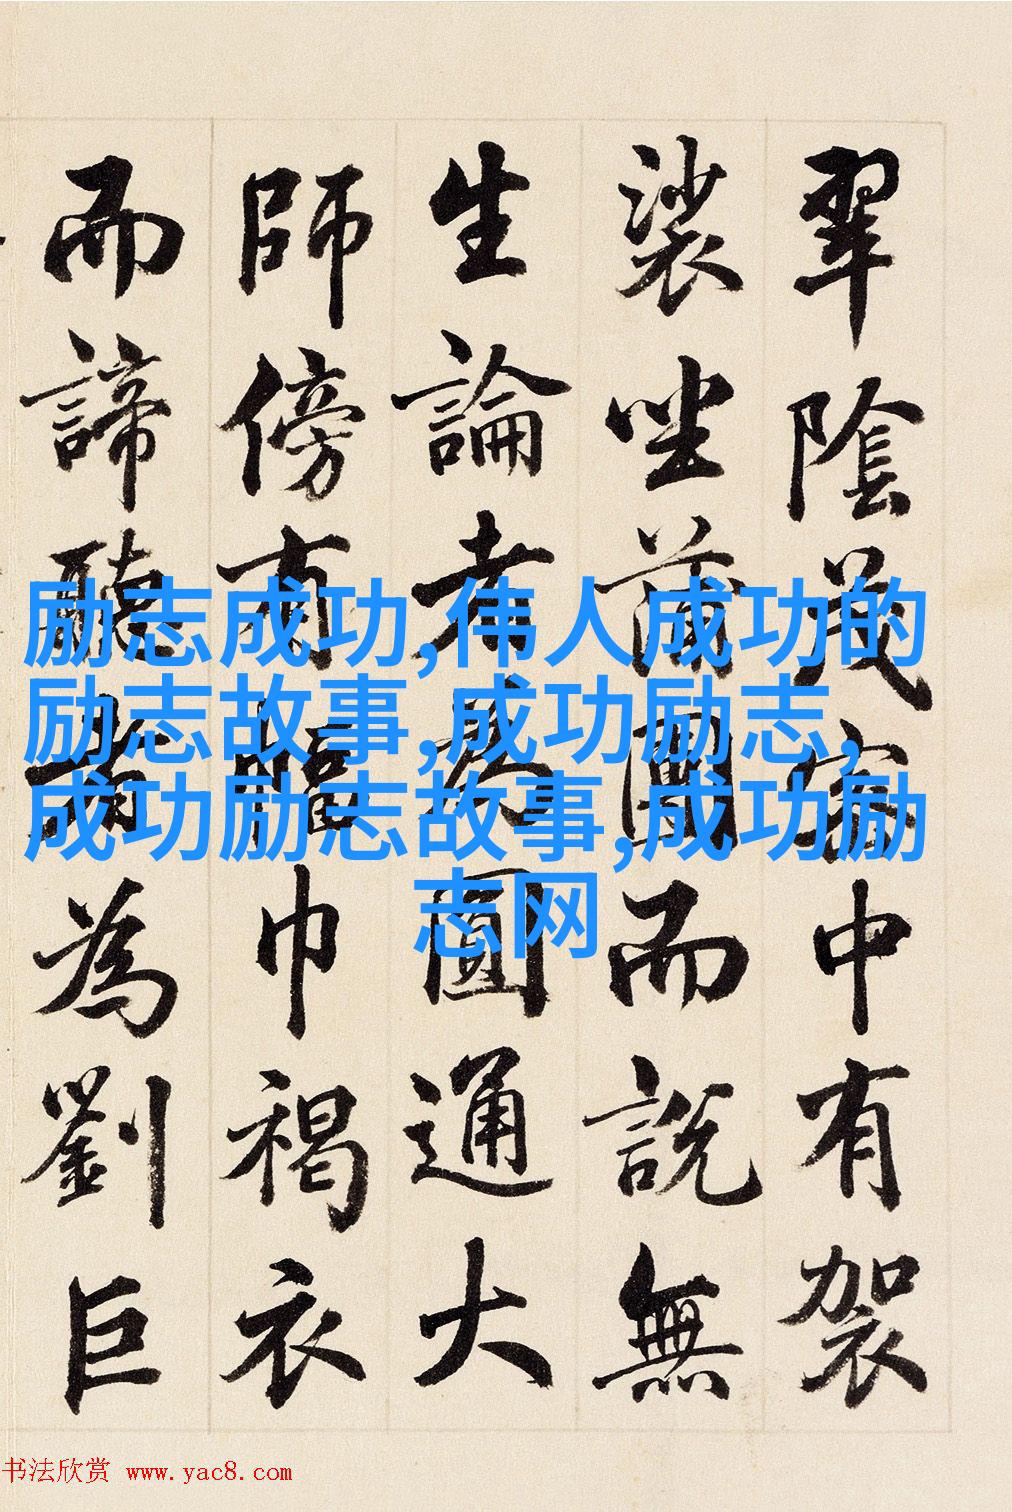 翠陰茂密中有袈
裟坐蒲團而說無
生論者為圓通大
師傍有幅巾褐衣
而諦聽者為劉巨
励志成功,伟人成功的
励志故事,成功励志,
成功励志故事,成功励
志网
书法欣赏 www.yac8.com